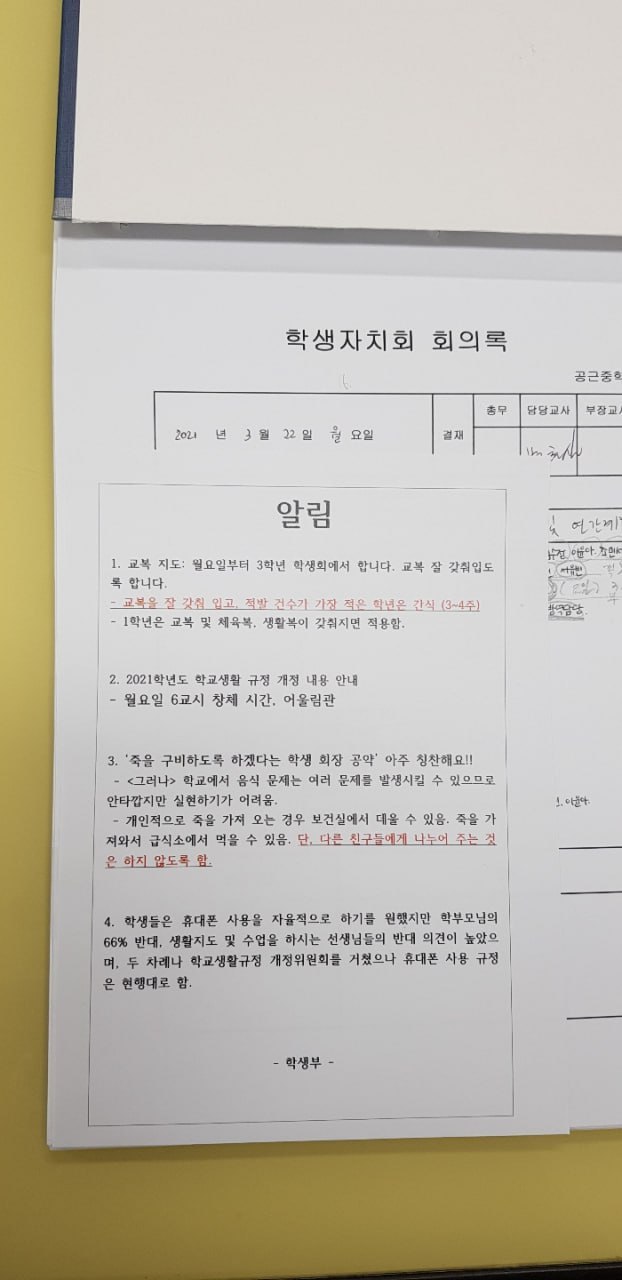 학생자치회 회의록
공근중학
총무 담당교사 부장교사
2021 년 3 월 22 일 월 요일 결재
알림
1. 교복 지도: 월요일부터 3학년 학생회에서 합니다. 교복 잘 갖춰입도
록 합니다.
- 교복을 잘 갖춰 입고, 적발 건수가 가장 적은 학년은 간식 (3~4주)
- 1학년은 교복 및 체육복, 생활복이 갖춰지면 적용함.
2. 2021학년도 학교생활 규정 개정 내용 안내
- 월요일 6교시 창체 시간, 어울림관
3. '죽을 구비하도록 하겠다는 학생 회장 공약' 아주 칭찬해요!!
- <그러나> 학교에서 음식 문제는 여러 문제를 발생시킬 수 있으므로
안타깝지만 실현하기가 어려움.
- 개인적으로 죽을 가져 오는 경우 보건실에서 데울 수 있음. 죽을 가
져와서 급식소에서 먹을 수 있음. 단, 다른 친구들에게 나누어 주는 것
은 하지 않도록 함.
4. 학생들은 휴대폰 사용을 자율적으로 하기를 원했지만 학부모님의
66% 반대, 생활지도 및 수업을 하시는 선생님들의 반대 의견이 높았으
며, 두 차례나 학교생활규정 개정위원회를 거쳤으나 휴대폰 사용 규정
은 현행대로 함.
- 학생부 -
및 연간계
이윤아.